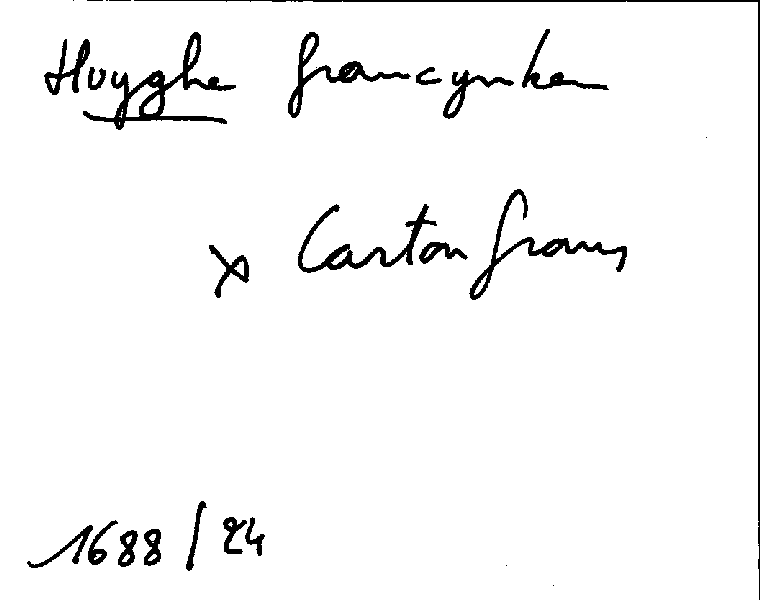 Huyghe francynken
x Carton frans
1688/24